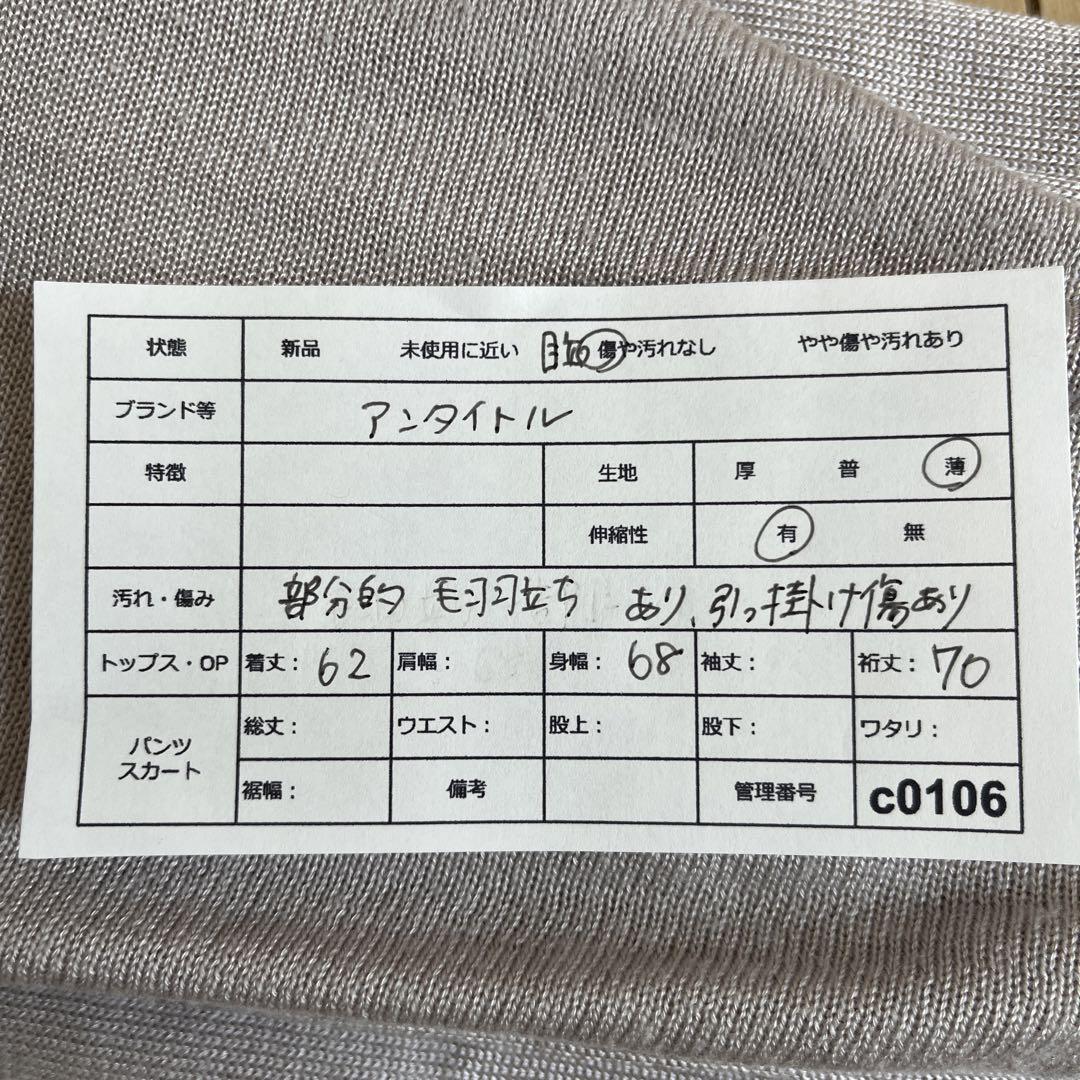 状態 新品 未使用に近い 目立 傷や汚れなし やや傷や汚れあり
ブランド等 アンタイトル
特徴 生地 厚 普 薄
伸縮性 有 無
汚れ・傷み 部分的 毛羽立ち あり、引っ掛け傷あり
トップス・OP 着丈：62 肩幅： 身幅：68 袖丈： 裄丈：70
パンツ スカート 総丈： ウエスト： 股上： 股下： ワタリ：
裾幅： 備考 管理番号 c0106